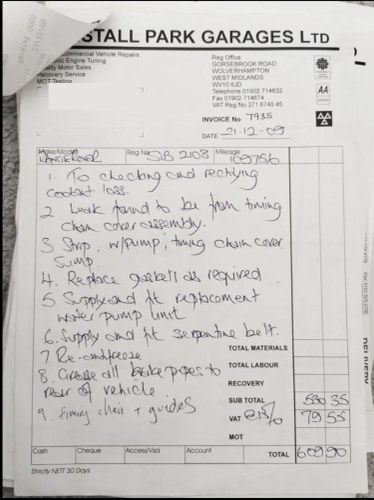 STALL PARK GARAGES LTD
Commercial Vehicle Repairs
Engine Tuning
Motor Sales
Recovery Service
MOT Testing
Reg Office
GORSEBROOK ROAD
WOLVERHAMPTON
WEST MIDLANDS
WV10 6JD
Telephone 01902 714632
Fax 01902 714674
VAT Reg No 371 6740 45
AA
INVOICE No 7935
DATE 21-12-09
Make/Model Reg No SIB 2108 Mileage 109756
1. To checking and rectifying
coolant loss.
2 Leak found to be from timing
chain cover assembly.
3 Strip, w/pump, timing chain cover
Sump
4. Replace gaskets as required
5 Supply and fit replacement
water pump unit
6. Supply and fit serpentine belt.
7. Re-antifreeze
8. Grease all brake pipes to
rear of vehicle
9. timing chain + guides
TOTAL MATERIALS
TOTAL LABOUR
RECOVERY
SUB TOTAL 530 35
VAT @15% 79 55
MOT
Cash Cheque Access/Visa Account TOTAL 609 90
Strictly NETT 30 Days